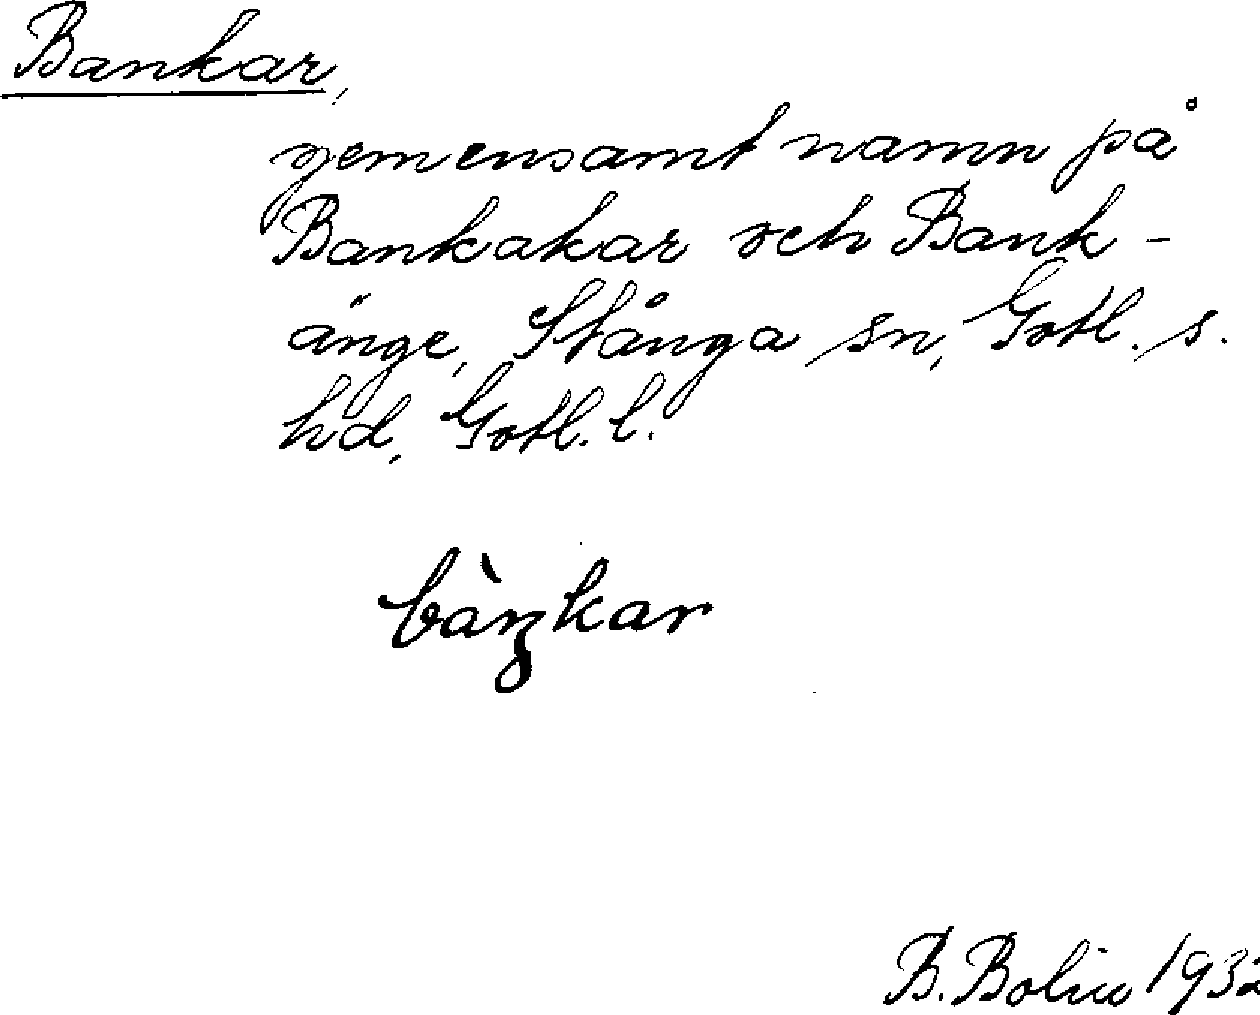 Bankar,
gemensamt namn på
Bankakar och Bank-
änge, Stånga sn, Gotl. s.
hd, Gotl. l.
bàŋkar
B. Bolin 1932